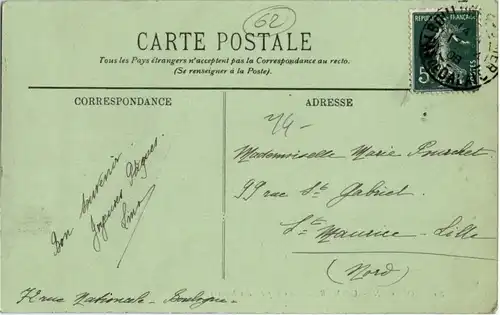 62
CARTE POSTALE
Tous les Pays étrangers n'acceptent pas la Correspondance au recto.
(Se renseigner à la Poste).
REPUBLIQUE FRANÇAISE
5
POSTES
CORRESPONDANCE
ADRESSE
Bon souvenir
Joyeuses Pâques
Mademoiselle Marie
99 rue St Gabriel
St Maurice - Lille
(Nord)
72 rue Nationale - Boulogne -